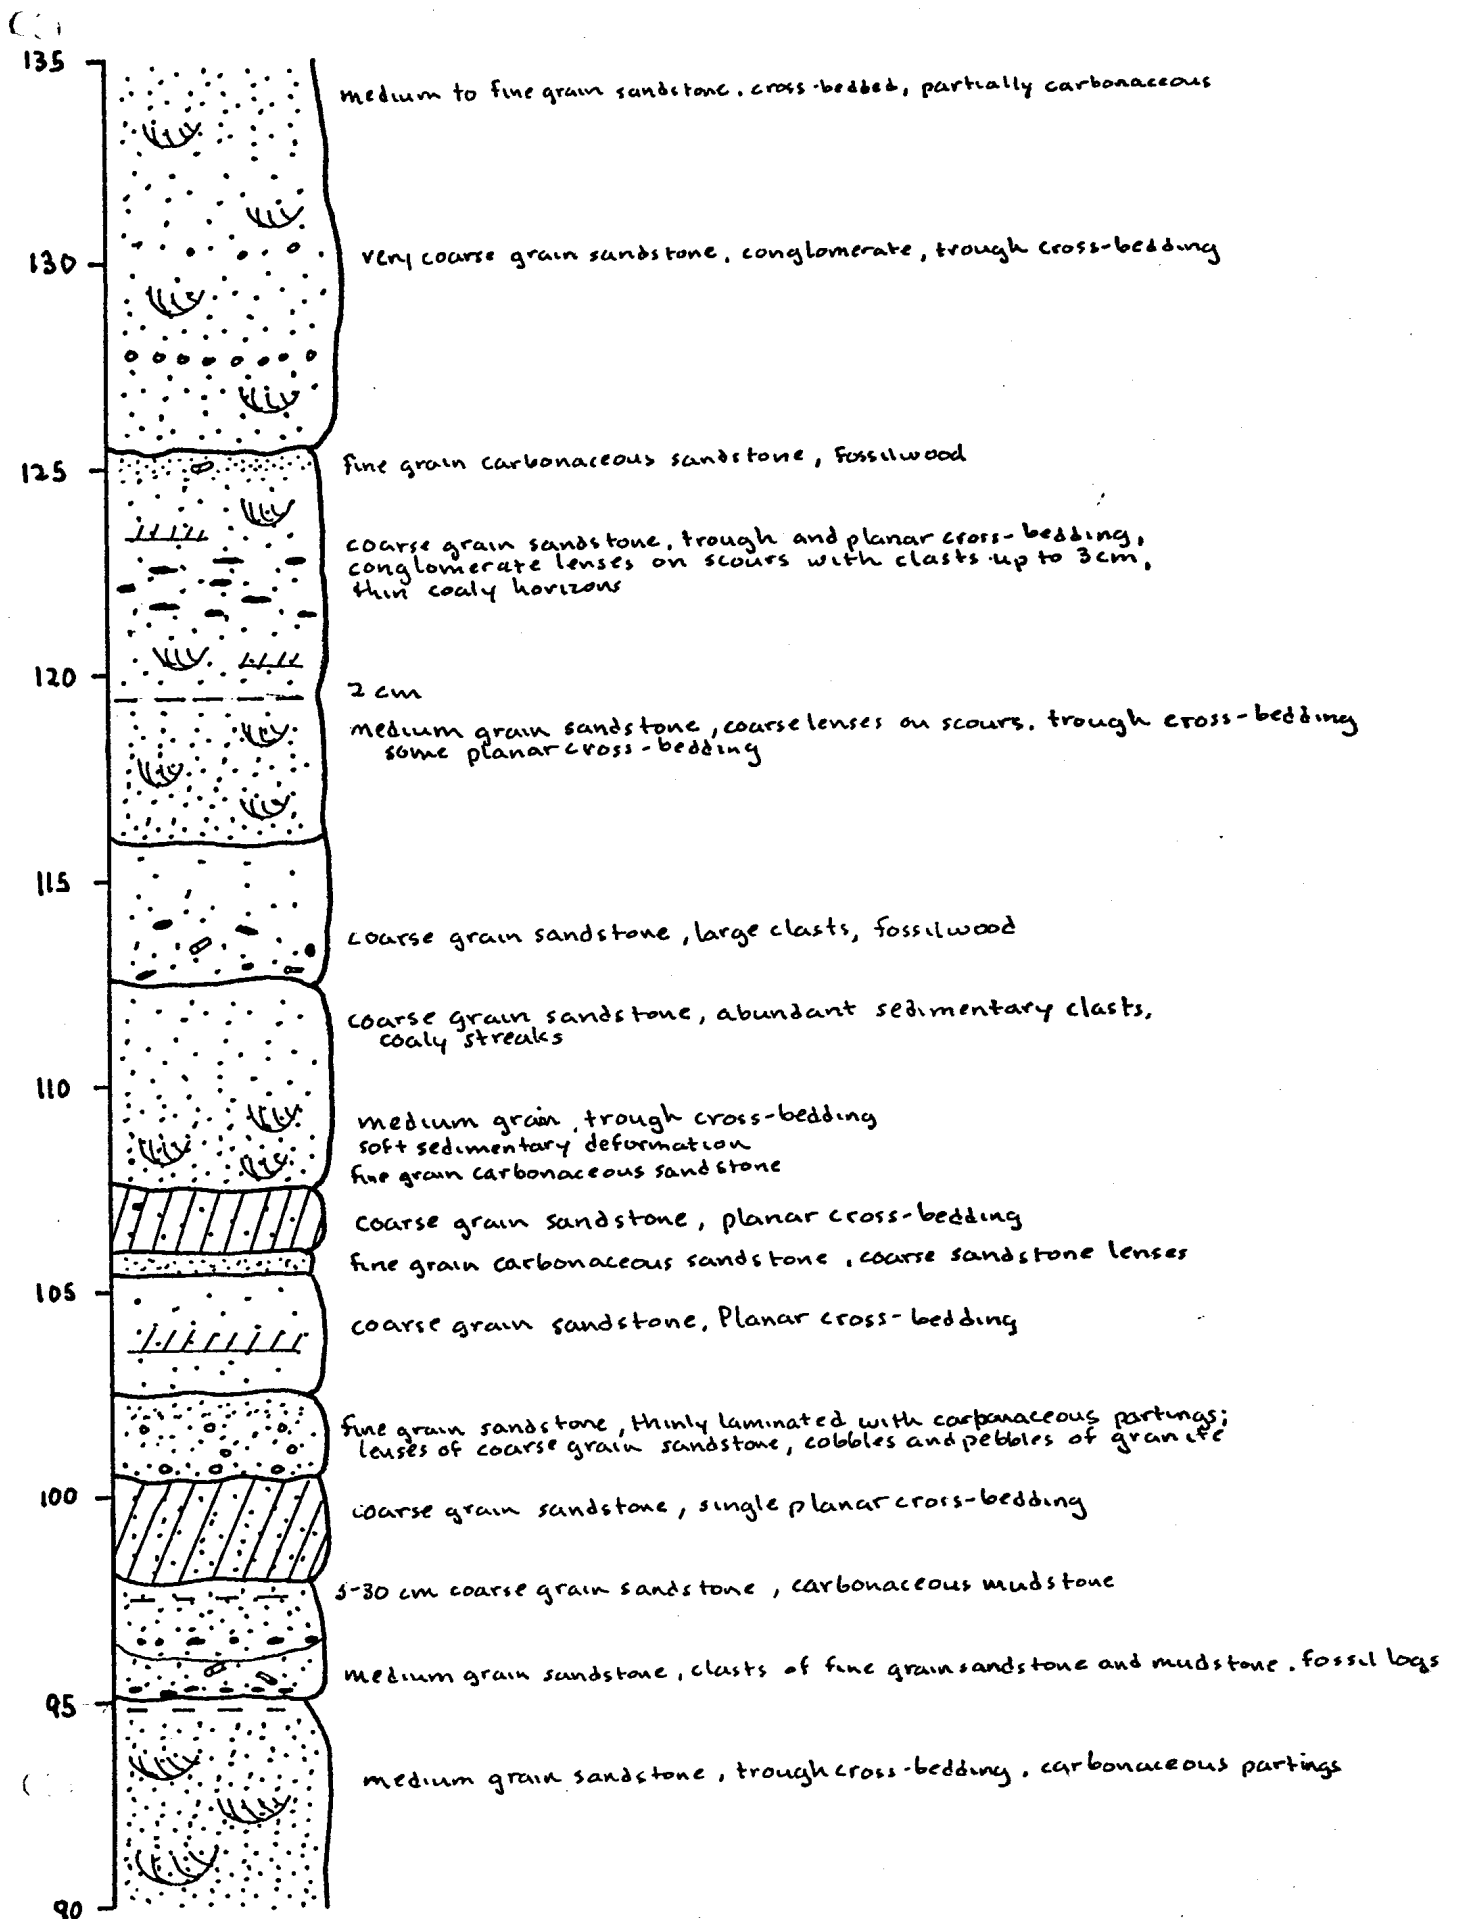 135
medium to fine grain sandstone, cross-bedded, partially carbonaceous
130
very coarse grain sandstone, conglomerate, trough cross-bedding
125
fine grain carbonaceous sandstone, fossilwood
coarse grain sandstone, trough and planar cross-bedding,
conglomerate lenses on scours with clasts up to 3cm,
thin coaly horizons
120
2 cm
medium grain sandstone, coarse lenses on scours, trough cross-bedding
some planar cross-bedding
115
coarse grain sandstone, large clasts, fossilwood
coarse grain sandstone, abundant sedimentary clasts,
coaly streaks
110
medium grain, trough cross-bedding
soft sedimentary deformation
fine grain carbonaceous sandstone
coarse grain sandstone, planar cross-bedding
fine grain carbonaceous sandstone, coarse sandstone lenses
105
coarse grain sandstone, Planar cross-bedding
fine grain sandstone, thinly laminated with carbonaceous partings;
lenses of coarse grain sandstone, cobbles and pebbles of granite
100
coarse grain sandstone, single planar cross-bedding
5-30 cm coarse grain sandstone, carbonaceous mudstone
medium grain sandstone, clasts of fine grain sandstone and mudstone, fossil logs
95
medium grain sandstone, trough cross-bedding, carbonaceous partings
90